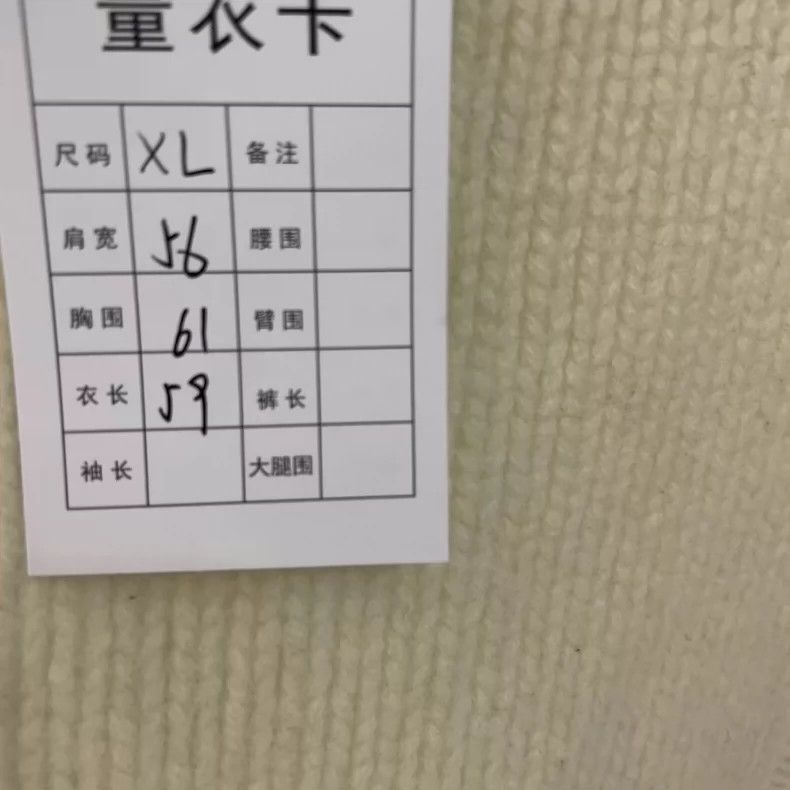 量衣卡
尺码 XL 备注
肩宽 56 腰围
胸围 61 臂围
衣长 59 裤长
袖长 大腿围